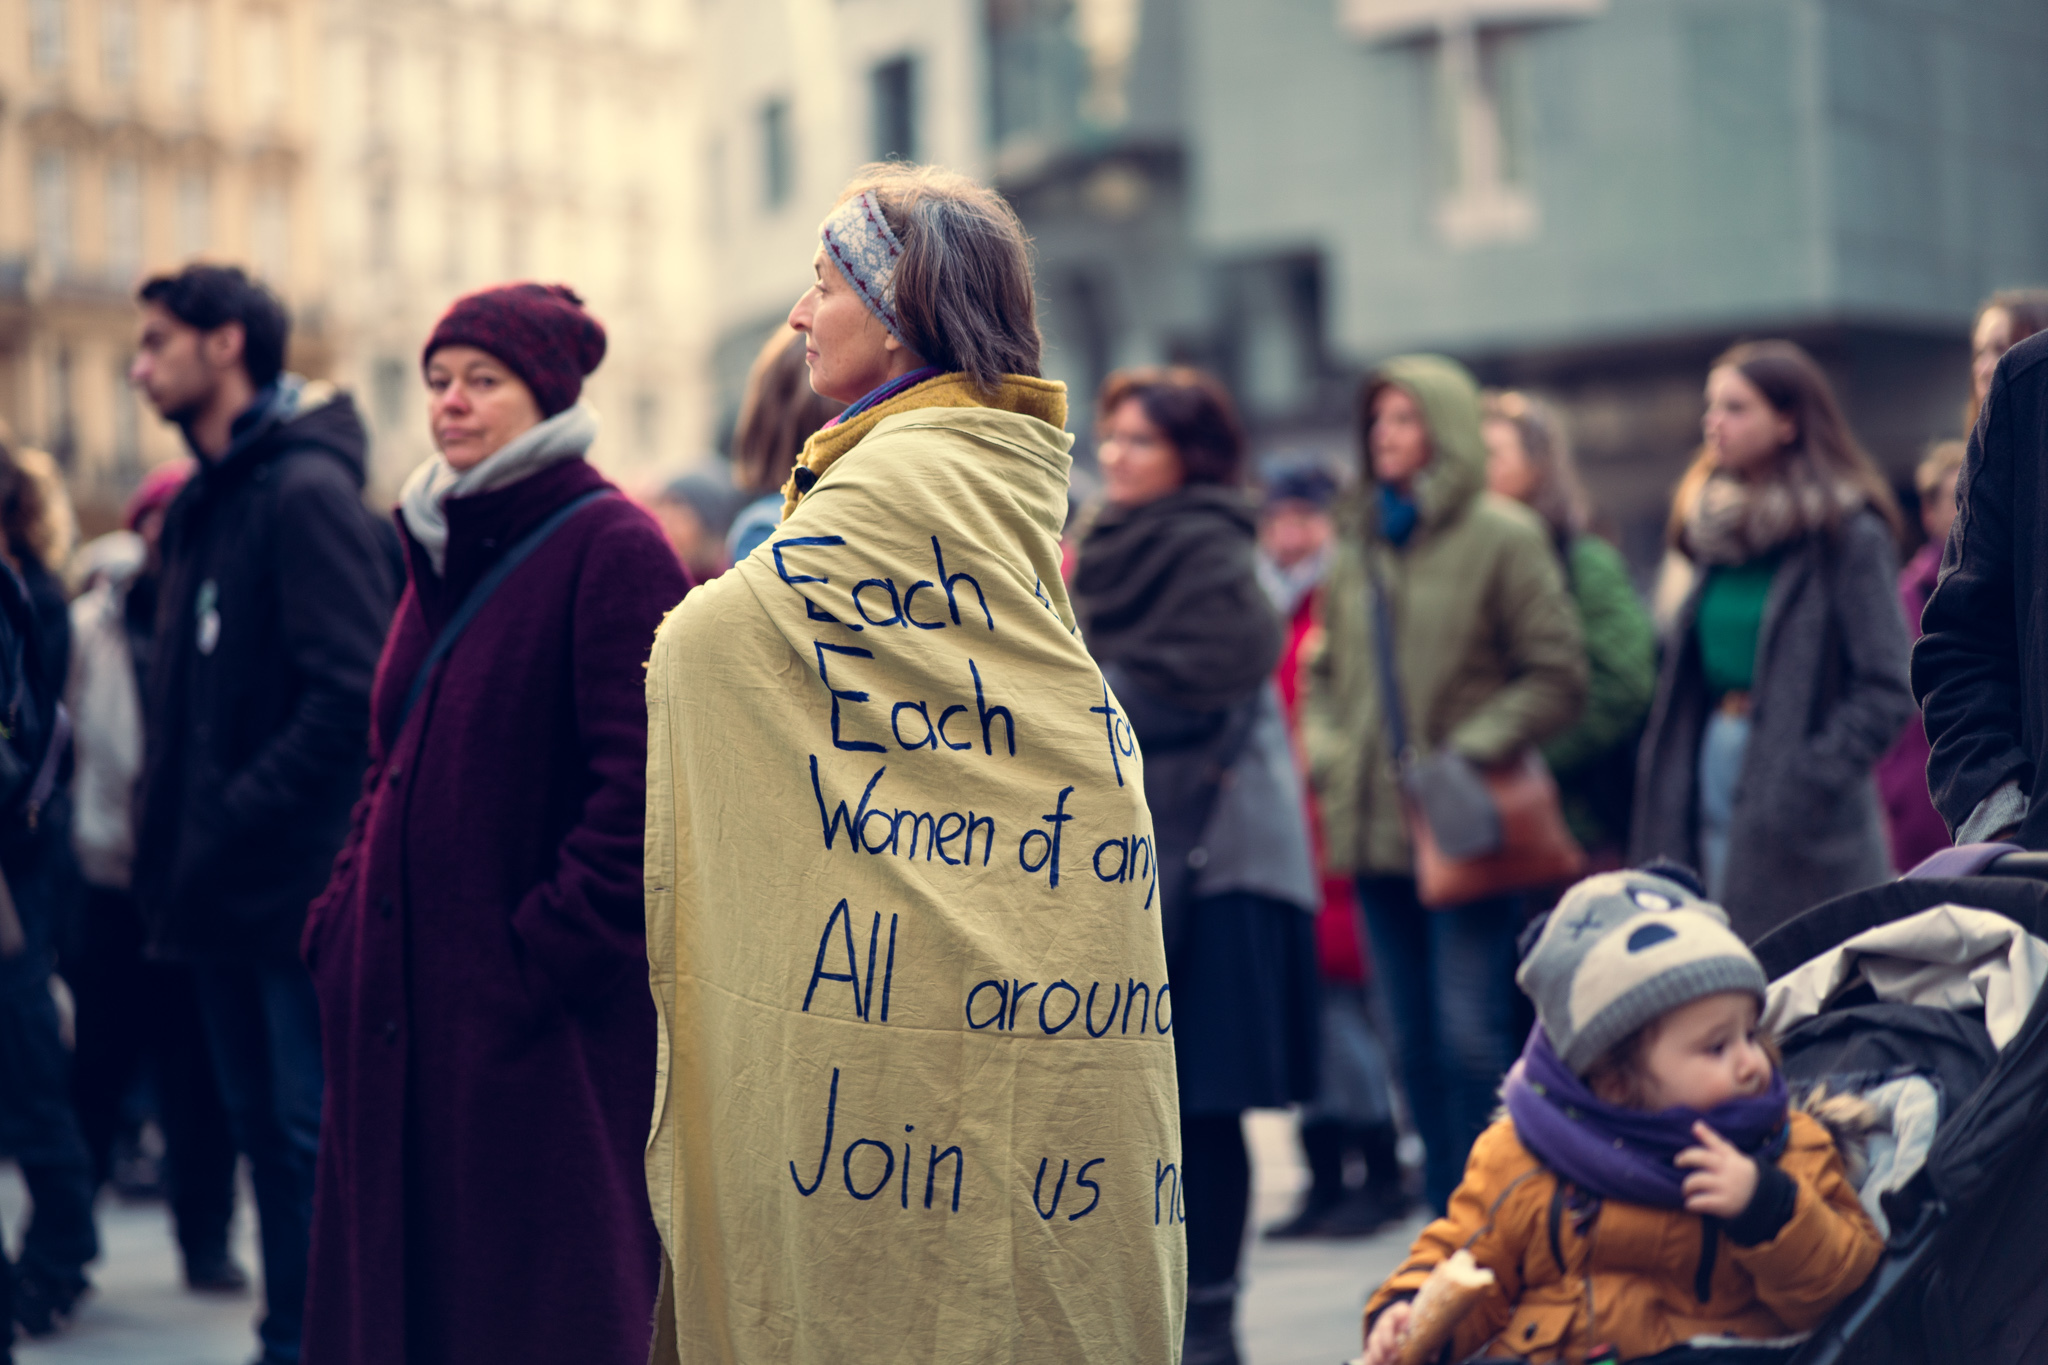 Each
Each
Women of any
All around
Join us